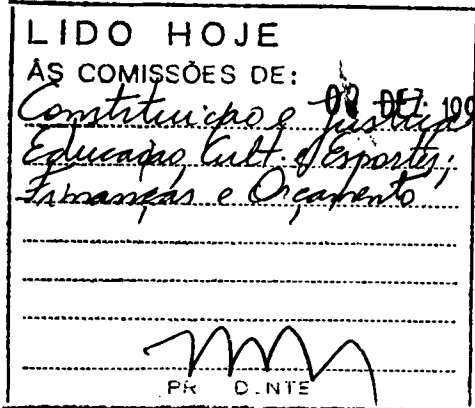 LIDO HOJE
ÀS COMISSÕES DE:
Constituição e Justiça
Educação, Cult. e Esportes;
Finanças e Orçamento
PR D.NTE